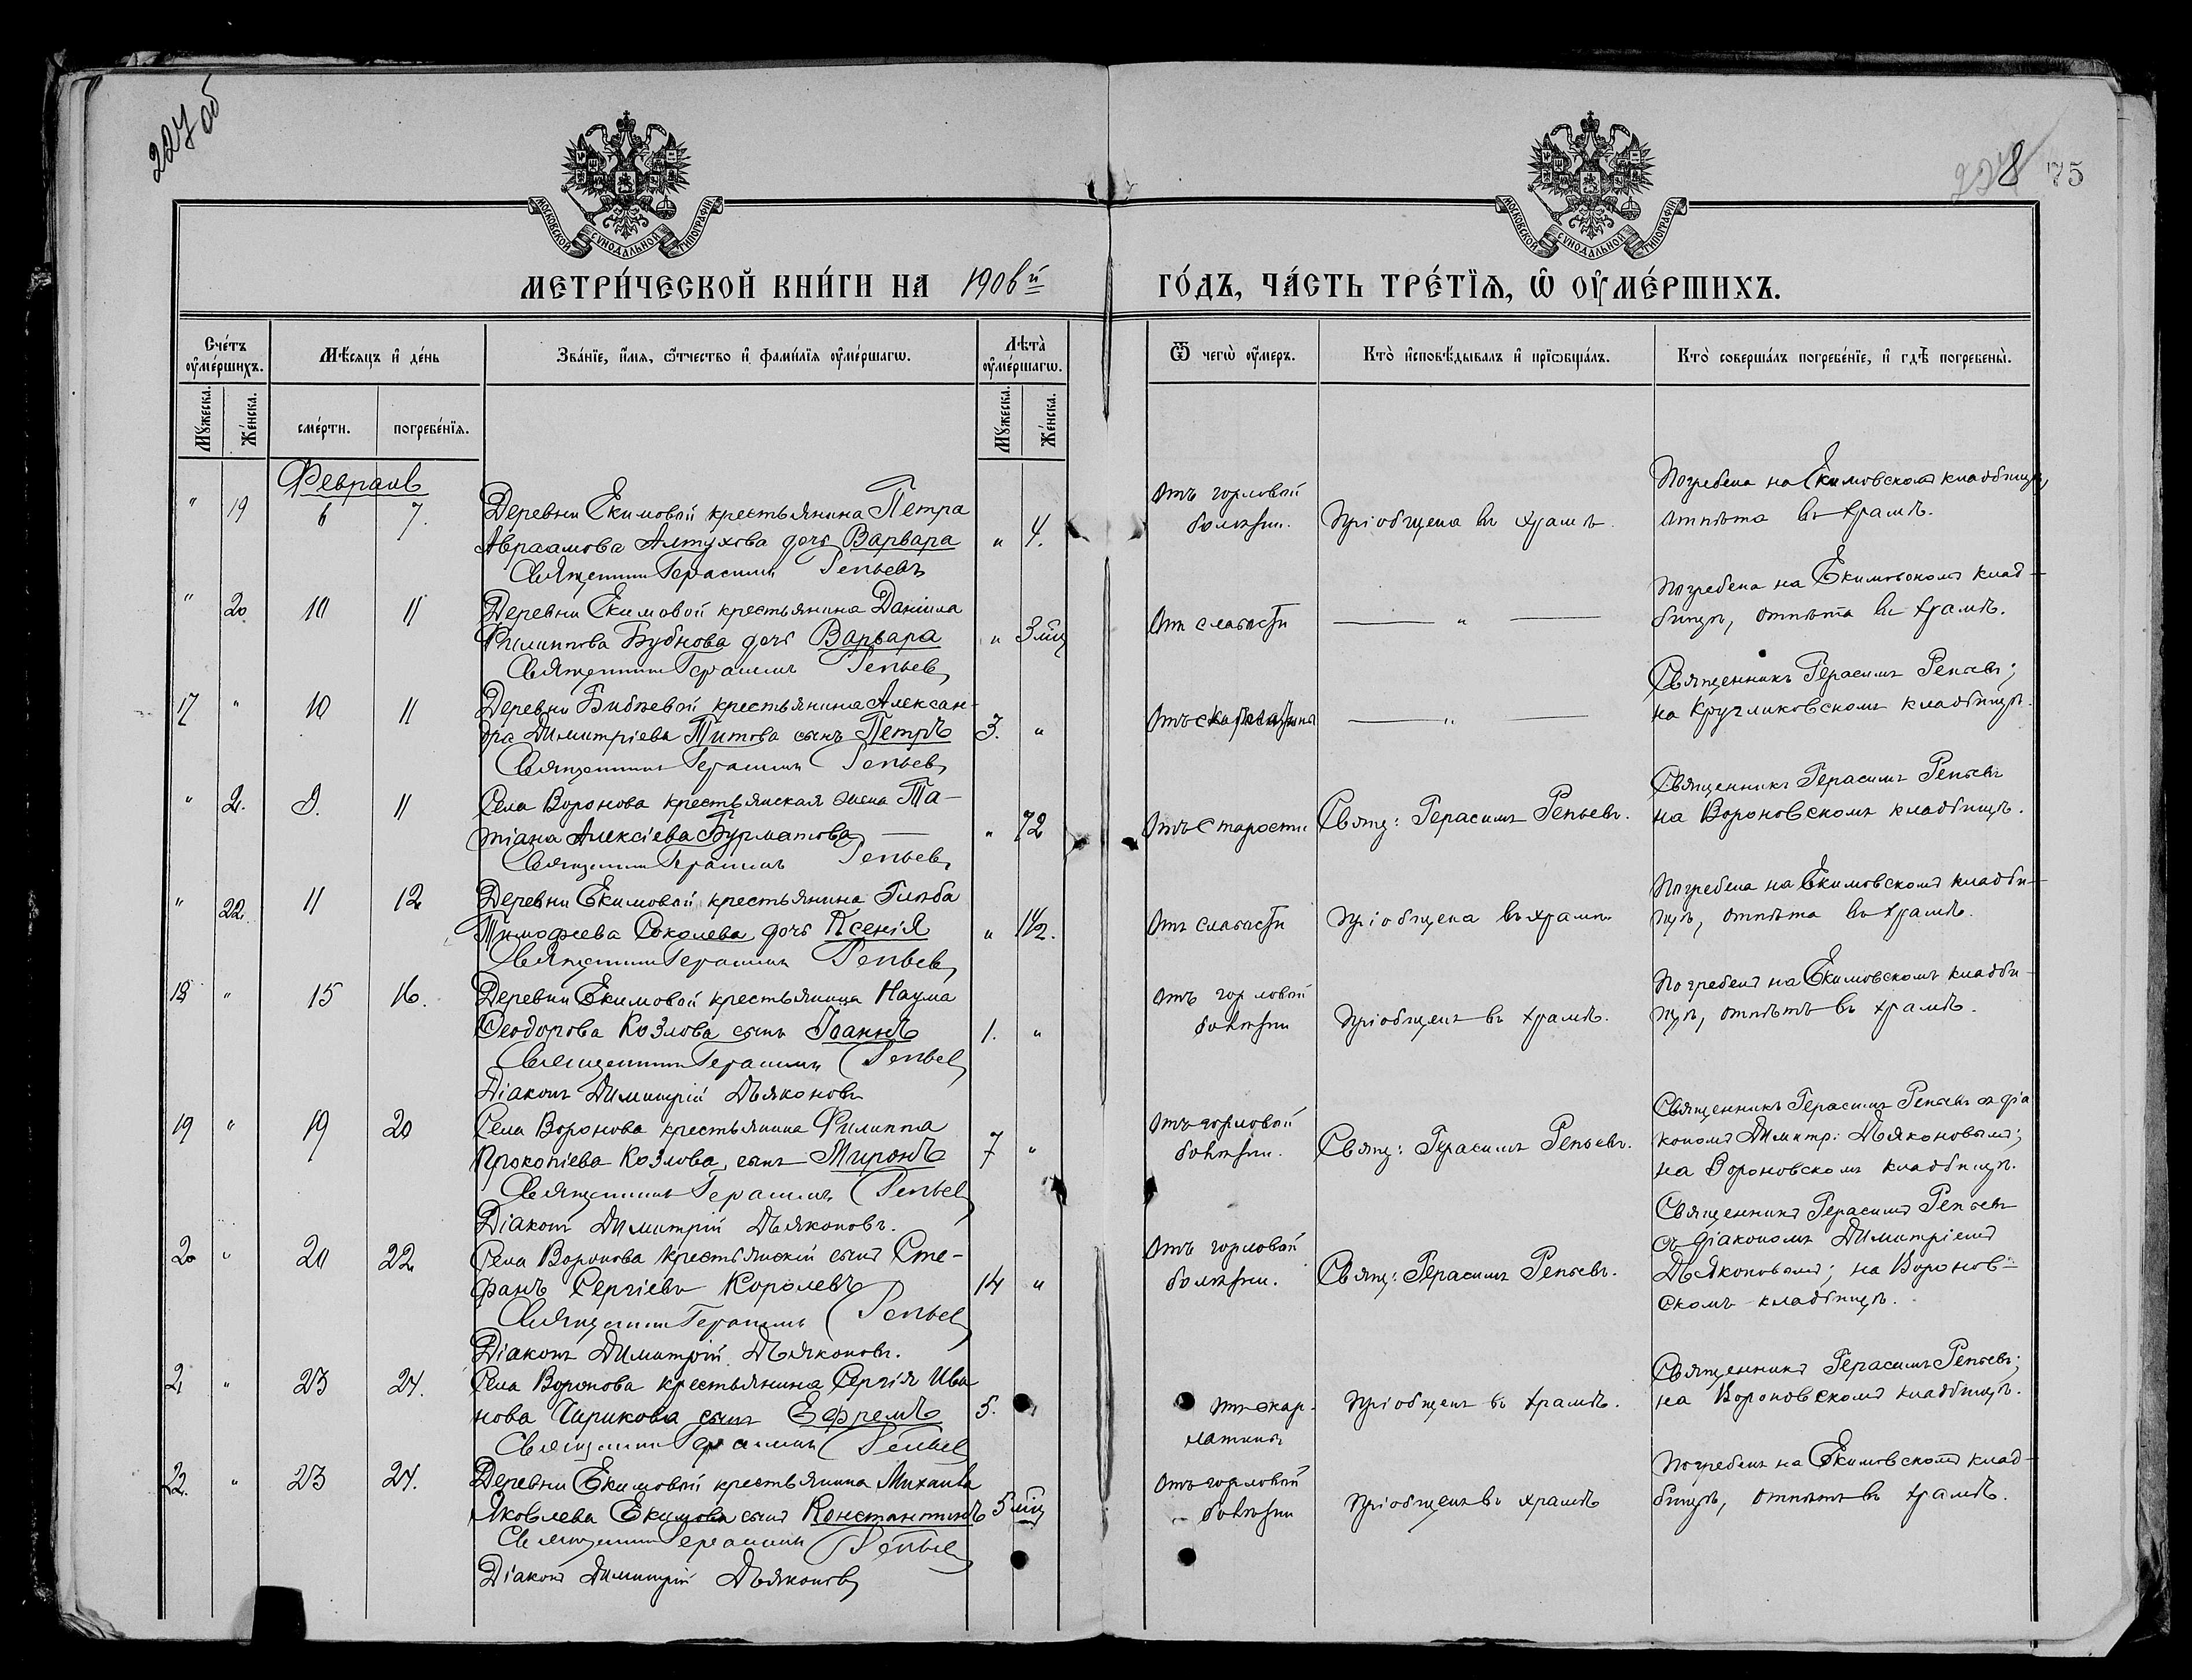 227 об
228 75
МОСКОВСКОЙ СУНОДАЛЬНОЙ ТИПОГРАФІИ
МОСКОВСКОЙ СУНОДАЛЬНОЙ ТИПОГРАФІИ
МЕТРИ́ЧЕСКОЙ КНИ́ГИ НА 1906й ГО́ДЪ, ЧА́СТЬ ТРЕ́ТЇѦ, Ѽ ОУМЕ́РШИХЪ.
Сче́тъ оуме́ршихъ. Мѣ́сяцъ и҆ де́нь Зва́нїе, и҆́мя, ѻ҆́тчество и҆ фами́лїя оуме́ршагѡ. Лѣ́та оуме́ршагѡ. Ѿ чегѡ̀ оу́меръ. Кто̀ и҆сповѣ́дывалъ и҆ прїѡбща́лъ. Кто̀ соверша́лъ погребе́нїе, и҆ гдѣ̀ погребены̀.
Му́жеска. Же́нска. сме́рти. погребе́нїя. Му́жеска. Же́нска.
Февраль
" 19 6 7. Деревни Екимовой крестьянина Петра
Авраамова Алтухова дочь Варвара " 4.
Священникъ Герасимъ Репьевъ
Отъ горловой
болѣзни. Пріобщена въ храмѣ.
Погребена на Екимовскомъ кладбищѣ,
отпѣта въ храмѣ.
" 20 10 11 Деревни Екимовой крестьянина Даніила
Филиппова Бубнова дочь Варвара " 3 мѣц
Священникъ Герасимъ Репьевъ
Отъ слабости — " —
Погребена на Екимовскомъ клад-
бищѣ, отпѣта въ храмѣ.
17 " 10 11 Деревни Бибѣевой крестьянина Алексан-
дра Димитріева Титова сынъ Петръ 3. "
Священникъ Герасимъ Репьевъ
Отъ скарлатины — " —
Священникъ Герасимъ Репьевъ;
на Кругликовскомъ кладбищѣ.
" 21. 9. 11 Села Воронова крестьянская жена Та-
тіана Алексіева Бурматова — " 72
Священникъ Герасимъ Репьевъ
Отъ старости Свящ: Герасимъ Репьевъ.
Священникъ Герасимъ Репьевъ
на Вороновскомъ кладбищѣ.
" 22. 11 12 Деревни Екимовой крестьянина Глѣба
Тимофеева Соколева дочь Ксенія " 1 1/2.
Священникъ Герасимъ Репьевъ
Отъ слабости Пріобщена въ храмѣ
Погребена на Екимовскомъ кладби-
щѣ, отпѣта въ храмѣ.
18 " 15 16. Деревни Екимовой крестьянина Наума
Ѳеодорова Козлова сынъ Іоаннъ 1. "
Священникъ Герасимъ Репьевъ
Діаконъ Димитрій Дьяконовъ
Отъ горловой
болѣзни Пріобщенъ въ храмѣ.
Погребенъ на Екимовскомъ кладби-
щѣ, отпѣтъ въ храмѣ.
19 " 19 20 Села Воронова крестьянина Филиппа
Прокопіева Козлова, сынъ Миронъ 7 "
Священникъ Герасимъ Репьевъ
Діаконъ Димитрій Дьяконовъ.
Отъ горловой
болѣзни. Свящ: Герасимъ Репьевъ.
Священникъ Герасимъ Репьевъ съ діа
кономъ Димитр: Дьяконовымъ;
на Вороновскомъ кладбищѣ.
20 " 20 22 Села Воронова крестьянскій сынъ Сте-
фанъ Сергіевъ Королевъ 14 "
Священникъ Герасимъ Репьевъ
Діаконъ Димитрій Дьяконовъ.
Отъ горловой
болѣзни. Свящ: Герасимъ Репьевъ.
Священникъ Герасимъ Репьевъ
съ діакономъ Димитріемъ
Дьяконовымъ; на Воронов-
скомъ кладбищѣ.
21 " 23 24. Села Воронова крестьянина Сергія Ива
нова Чирикова сынъ Ефремъ 5. "
Священникъ Герасимъ Репьевъ
Отъ скар-
латины Пріобщенъ въ храмѣ.
Священникъ Герасимъ Репьевъ;
на Вороновскомъ кладбищѣ.
22. " 23 24. Деревни Екимовой крестьянина Михаила
Яковлева Екимова сынъ Константинъ 5 мѣц
Священникъ Герасимъ Репьевъ
Діаконъ Димитрій Дьяконовъ
Отъ горловой
болѣзни Пріобщенъ въ храмѣ
Погребенъ на Екимовскомъ клад-
бищѣ, отпѣтъ въ храмѣ.